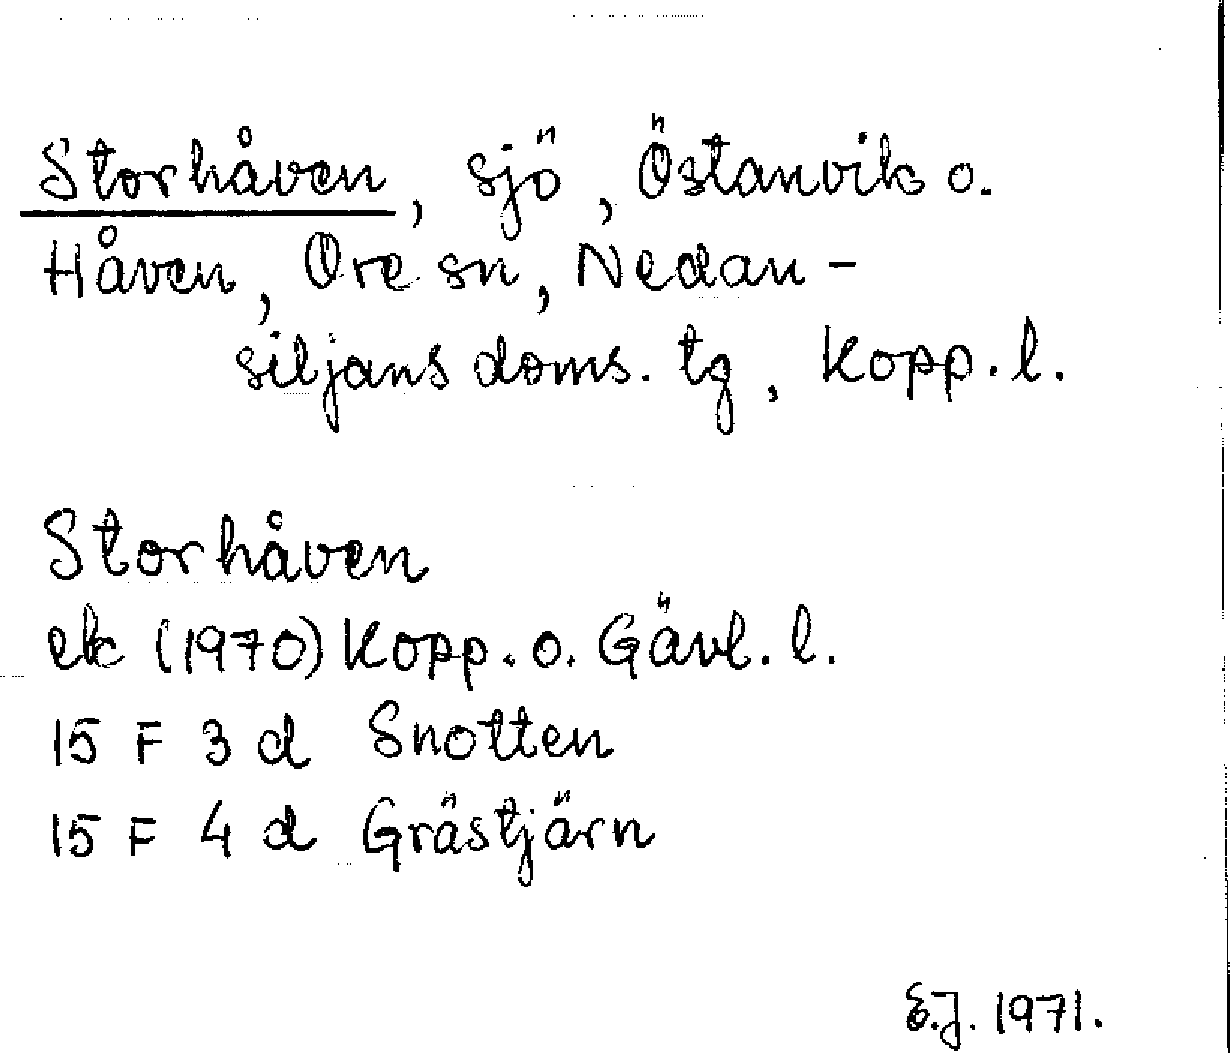 Storhåven, sjö, Östanvik o.
Håven, Ore sn, Nedan-
siljans doms. tg, Kopp. l.
Storhåven
ek (1970) Kopp. o. Gävl. l.
15 F 3 d Snotten
15 F 4 d Grästjärn
E.J. 1971.